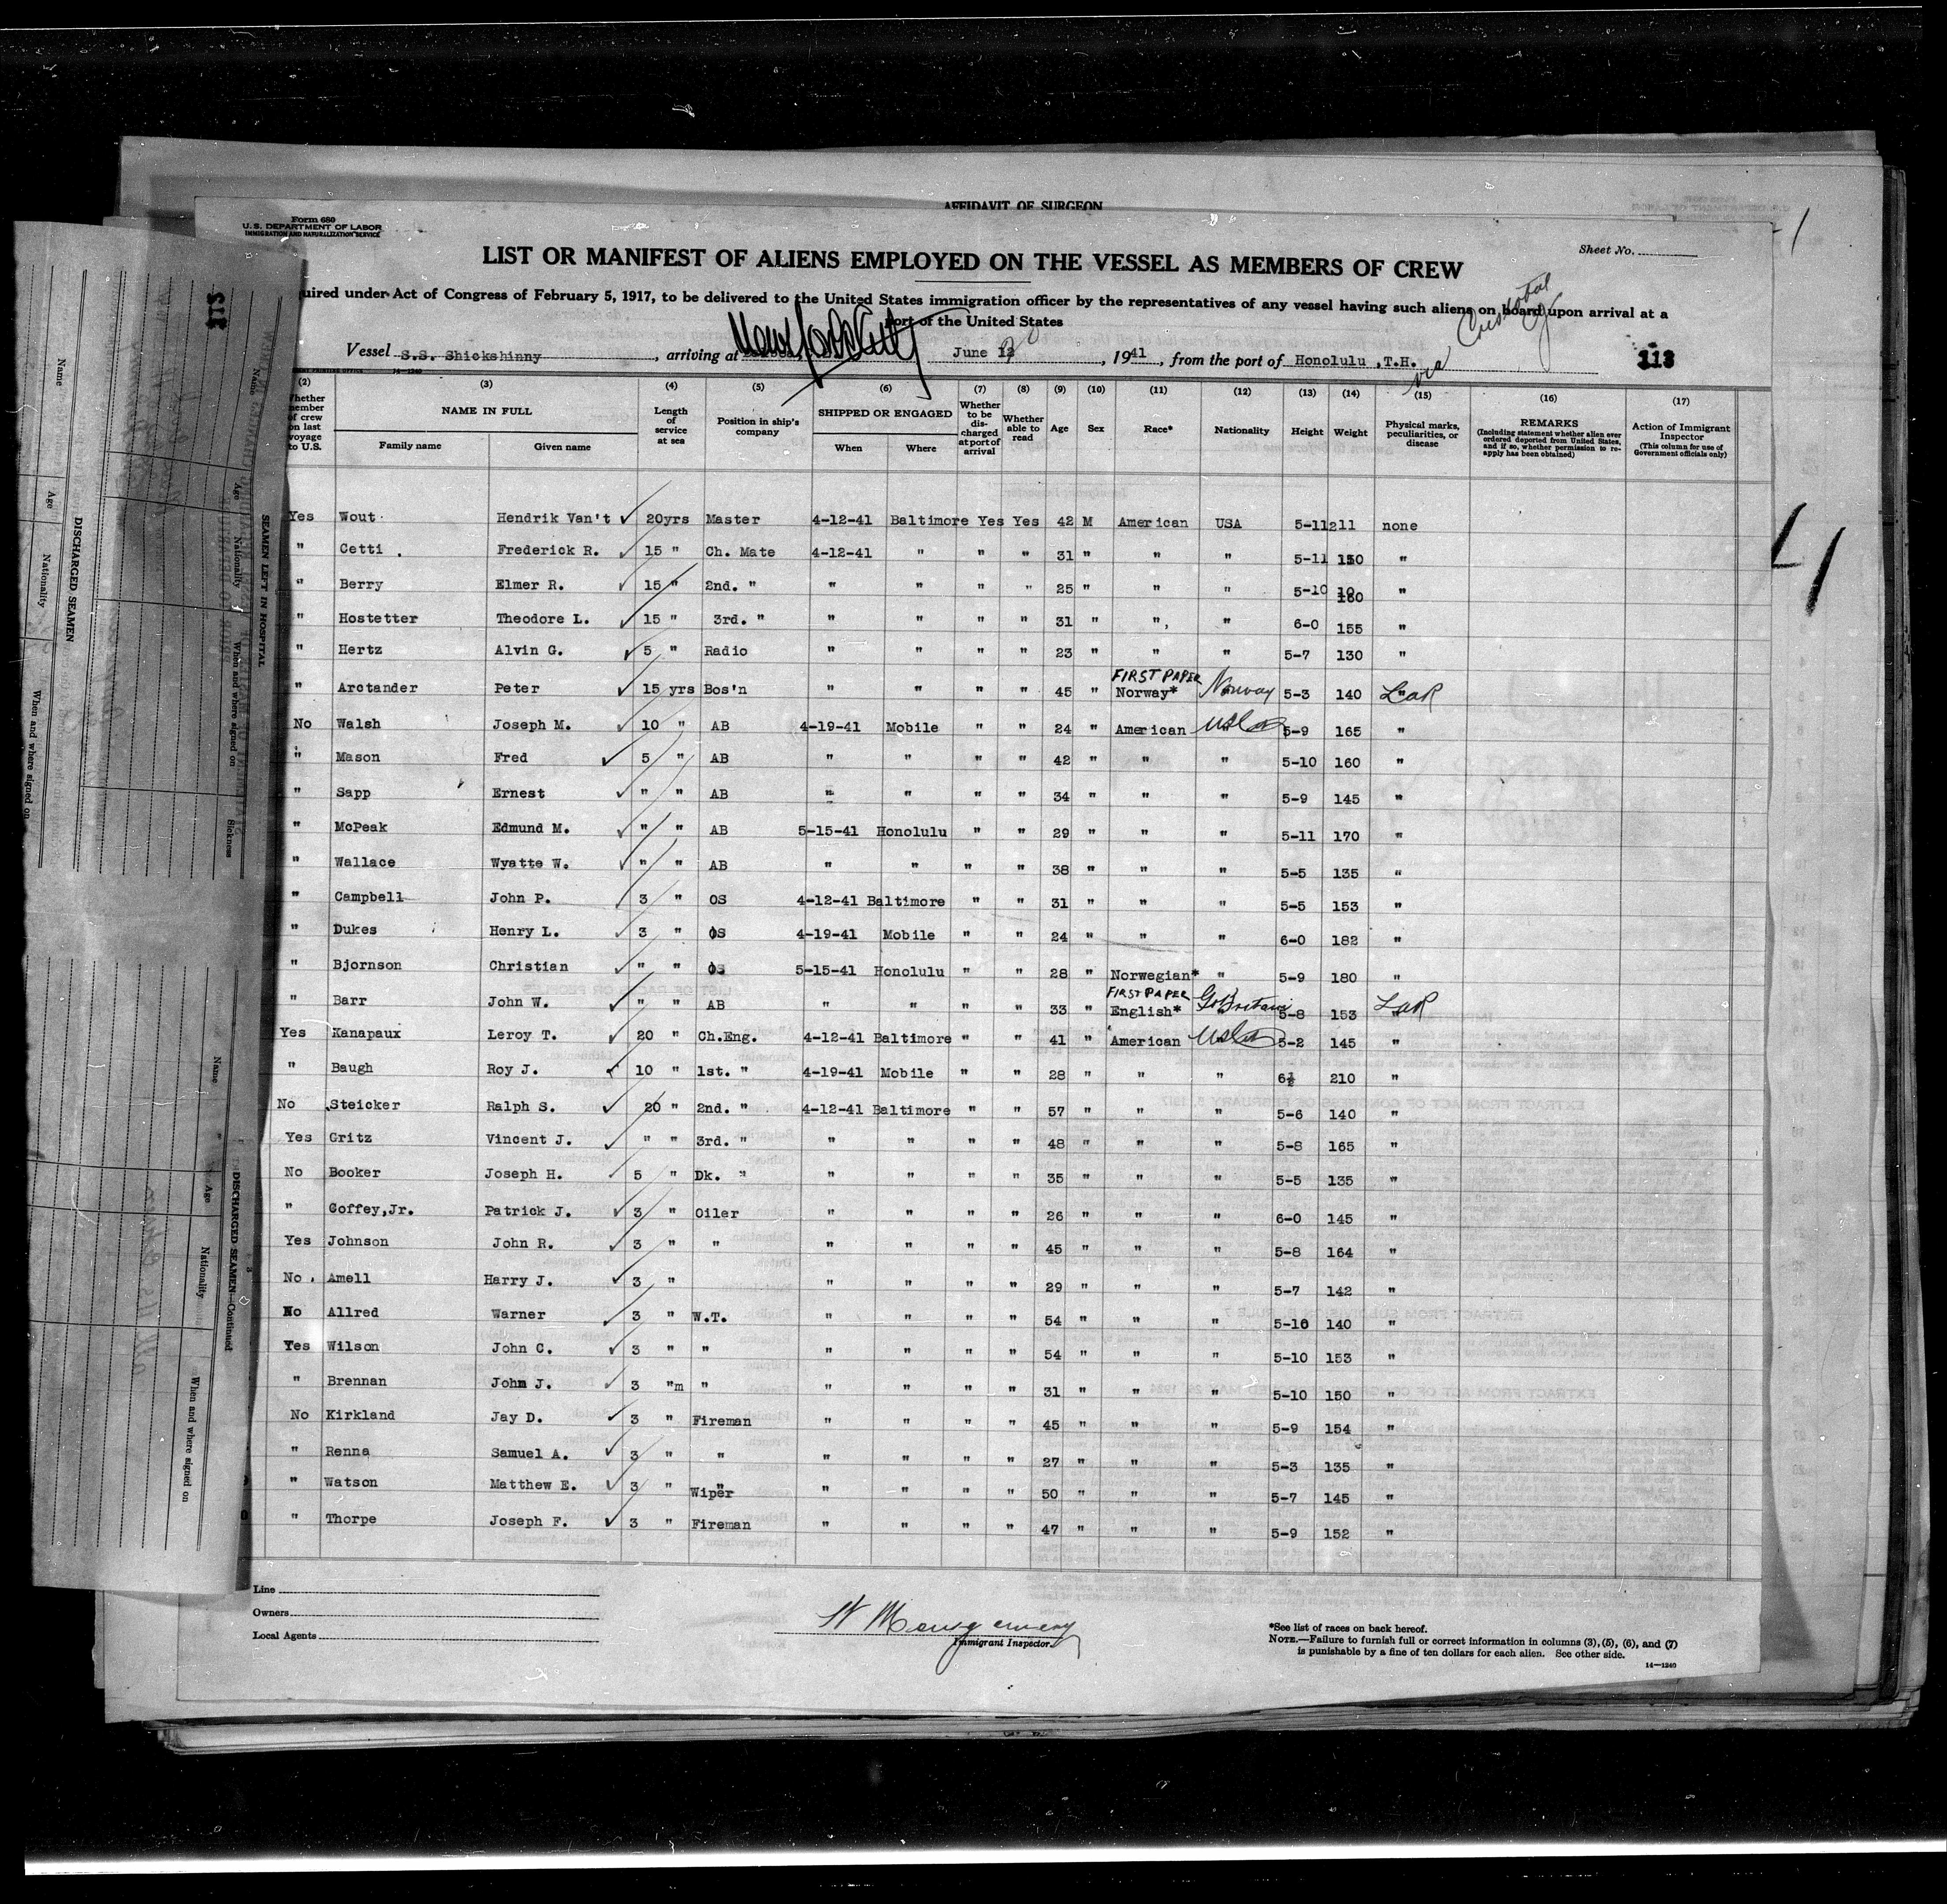 AFFIDAVIT OF SURGEON
Form 680
U.S. DEPARTMENT OF LABOR
IMMIGRATION AND NATURALIZATION SERVICE
Sheet No.
LIST OR MANIFEST OF ALIENS EMPLOYED ON THE VESSEL AS MEMBERS OF CREW
uired under Act of Congress of February 5, 1917, to be delivered to the United States immigration officer by the representatives of any vessel having such aliens on board upon arrival at a
port of the United States
Vessel S.S. Shickshinny, arriving at June 20, 1941, from the port of Honolulu ,T.H. via Cristobal 113
(2) (3) (4) (5) (6) (7) (8) (9) (10) (11) (12) (13) (14) (15) (16) (17)
Whether member of crew on last voyage to U.S. NAME IN FULL Family name Given name Length of service at sea Position in ship's company SHIPPED OR ENGAGED When Where Whether to be discharged at port of arrival Whether able to read Age Sex Race* Nationality Height Weight Physical marks, peculiarities, or disease REMARKS (Including statement whether alien ever ordered deported from United States, and if so, whether permission to reapply has been obtained) Action of Immigrant Inspector (This column for use of Government officials only)
Yes Wout Hendrik Van't 20yrs Master 4-12-41 Baltimore Yes Yes 42 M American USA 5-11 211 none
" Cetti Frederick R. 15 " Ch. Mate 4-12-41 " " " 31 " " " 5-11 150 "
" Berry Elmer R. 15 " 2nd. " " " " " 25 " " " 5-10 180 "
" Hostetter Theodore L. 15 " 3rd. " " " " " 31 " " " 6-0 155 "
" Hertz Alvin G. 5 " Radio " " " " 23 " " " 5-7 130 "
" Arctander Peter 15 yrs Bos'n " " " " 45 " FIRST PAPER Norway* Norway 5-3 140 LaR
No Walsh Joseph M. 10 " AB 4-19-41 Mobile " " 24 " American USA 5-9 165 "
" Mason Fred 5 " AB " " " " 42 " " " 5-10 160 "
" Sapp Ernest " " AB " " " " 34 " " " 5-9 145 "
" McPeak Edmund M. " " AB 5-15-41 Honolulu " " 29 " " " 5-11 170 "
" Wallace Wyatte W. " " AB " " " " 38 " " " 5-5 135 "
" Campbell John P. 3 " OS 4-12-41 Baltimore " " 31 " " " 5-5 153 "
" Dukes Henry L. 3 " OS 4-19-41 Mobile " " 24 " " " 6-0 182 "
" Bjornson Christian " " OS 5-15-41 Honolulu " " 28 " Norwegian* " 5-9 180 "
" Barr John W. " " AB " " " " 33 " FIRST PAPER English* Gt Britain 5-8 153 LaR
Yes Kanapaux Leroy T. 20 " Ch.Eng. 4-12-41 Baltimore " " 41 " American USA 5-2 145 "
" Baugh Roy J. 10 " 1st. " 4-19-41 Mobile " " 28 " " " 6½ 210 "
No Steicker Ralph S. 20 " 2nd. " 4-12-41 Baltimore " " 57 " " " 5-6 140 "
Yes Gritz Vincent J. " " 3rd. " " " " " 48 " " " 5-8 165 "
No Booker Joseph H. 5 " Dk. " " " " " 35 " " " 5-5 135 "
" Coffey,Jr. Patrick J. 3 " Oiler " " " " 26 " " " 6-0 145 "
Yes Johnson John R. 3 " " " " " " 45 " " " 5-8 164 "
No Amell Harry J. 3 " " " " " 29 " " " 5-7 142 "
No Allred Warner 3 " W.T. " " " " 54 " " " 5-10 140 "
Yes Wilson John C. 3 " " " " " " 54 " " " 5-10 153 "
" Brennan John J. 3 "m " " " " " 31 " " " 5-10 150 "
No Kirkland Jay D. 3 " Fireman " " " " 45 " " " 5-9 154 "
" Renna Samuel A. 3 " " " " " " 27 " " " 5-3 135 "
" Watson Matthew E. 3 " Wiper " " " " 50 " " " 5-7 145 "
" Thorpe Joseph F. 3 " Fireman " " " " 47 " " " 5-9 152 "
Line
Owners
Local Agents
W Montgomery
Immigrant Inspector.
*See list of races on back hereof.
NOTE.—Failure to furnish full or correct information in columns (3), (5), (6), and (7)
is punishable by a fine of ten dollars for each alien. See other side.
14—1240
SEAMEN LEFT IN HOSPITAL
Name Age Nationality When and where signed on Sickness
DISCHARGED SEAMEN
Name Age Nationality When and where signed on
DISCHARGED SEAMEN—Continued
Name Age Nationality When and where signed on